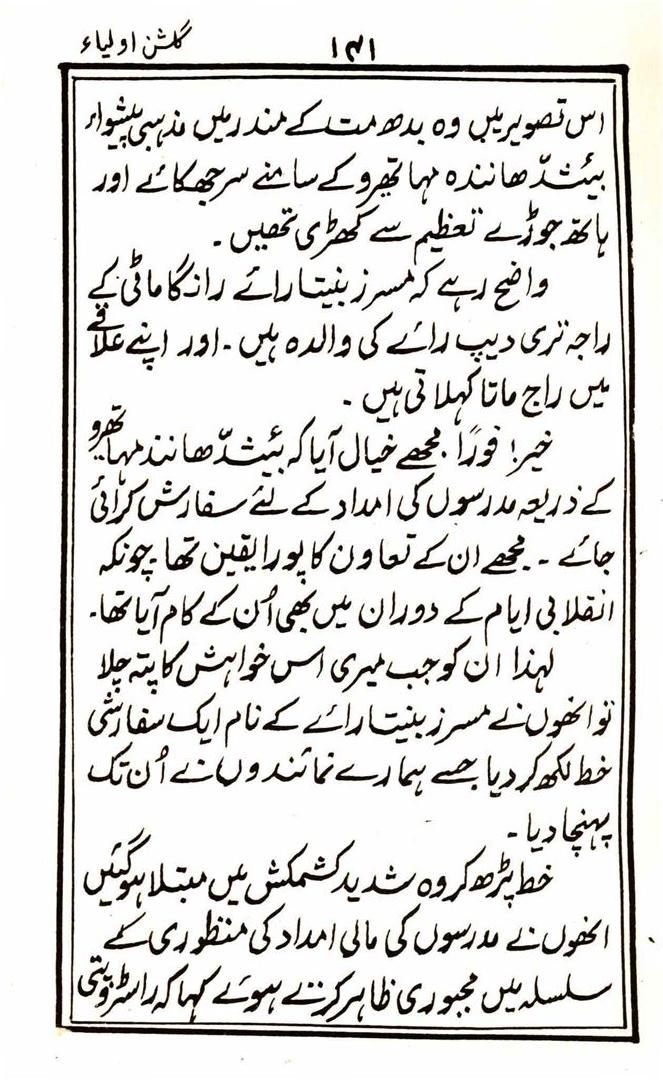 گلشن اولیاء ۱۴۱
اس تصویر میں وہ بدھ مت کے مندر میں مذہبی پیشواء
بیئشدّھانندہ مہا تھیرو کے سامنے سر جھکائے اور
ہاتھ جوڑے تعظیم سے کھڑی تھیں ۔
واضح رہے کہ مسرز بنیتا رائے رانگاماٹی کے
راجہ تری دیپ رائے کی والدہ ہیں ۔ اور اپنے علاقے
میں راج ماتا کہلاتی ہیں ۔
خیر! فوراً مجھے خیال آیا کہ بئیشدّھانند مہا تھیرو
کے ذریعہ مدرسوں کی امداد کے لئے سفارش کرائی
جائے ۔ مجھے ان کے تعاون کا پورا یقین تھا چونکہ
انقلابی ایام کے دوران میں بھی اُن کے کام آیا تھا۔
لہذا ان کو جب میری اس خواہش کا پتہ چلا
تو انھوں نے مسرز بنیتا رائے کے نام ایک سفارشی
خط لکھ کر دیا جسے ہمارے نمائندوں نے اُن تک
پہنچا دیا ۔
خط پڑھ کر وہ شدید کشمکش میں مبتلا ہو گئیں
انھوں نے مدرسوں کی مالی امداد کی منظوری کے
سلسلہ میں مجبوری ظاہر کرتے ہوئے کہا کہ راسٹروپتی